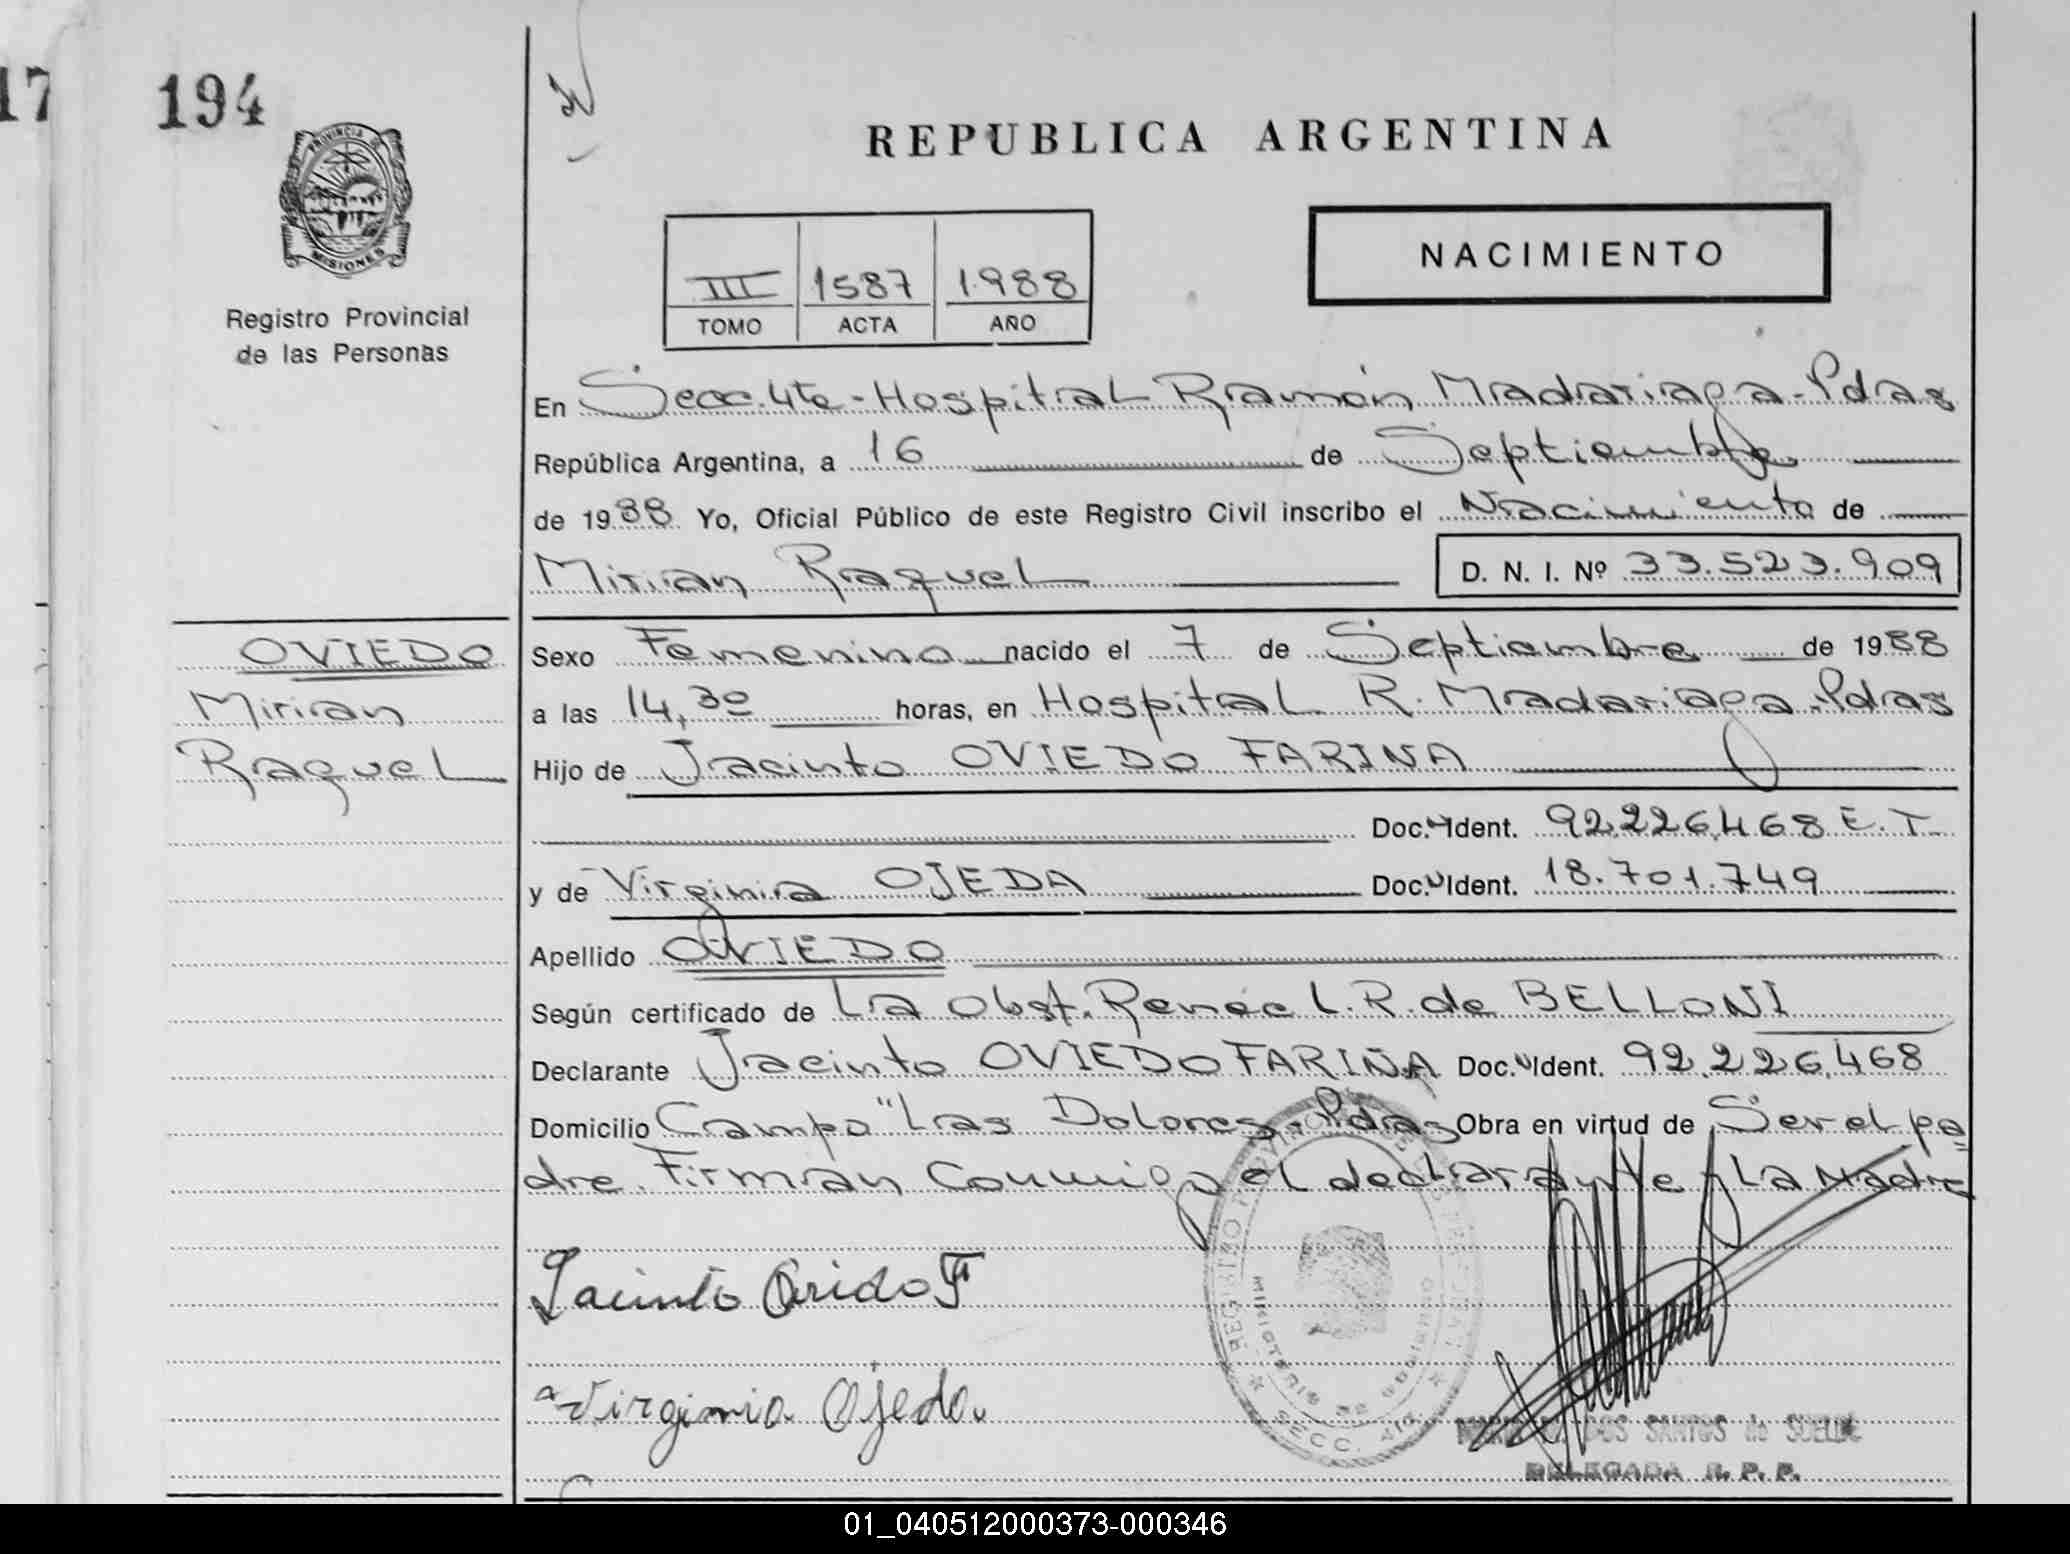 17
194
PROVINCIA DE
MISIONES
Registro Provincial
de las Personas
REPUBLICA ARGENTINA
NACIMIENTO
III 1587 1988
TOMO ACTA AÑO
En Secc. 4ta - Hospital Ramón Madariaga - Pdas
República Argentina, a 16 de Septiembre
de 1988 Yo, Oficial Público de este Registro Civil inscribo el Nacimiento de
Mirian Raquel D. N. I. Nº 33.523.909
OVIEDO
Mirian
Raquel
Sexo Femenino nacido el 7 de Septiembre de 1988
a las 14,30 horas, en Hospital R. Madariaga. Pdas
Hijo de Jacinto OVIEDO FARINA
Doc. Ident. 92.226.468 E.T.
y de Virginia OJEDA Doc. Ident. 18.701.749
Apellido OVIEDO
Según certificado de La Obst. Renée L. R. de BELLONI
Declarante Jacinto OVIEDO FARIÑA Doc. Ident. 92.226.468
Domicilio Campo "Las Dolores. Pdas Obra en virtud de Ser el pa=
dre. Firman Conmigo el declarante y La Madre
Jacinto Oviedo F
Virginia Ojeda
REGISTRO PROVINCIAL DE LAS PERSONAS
MINISTERIO DE GOBIERNO
SECC. 4ta.
DOS SANTOS de
DELEGADA R. P. P.
01_040512000373-000346